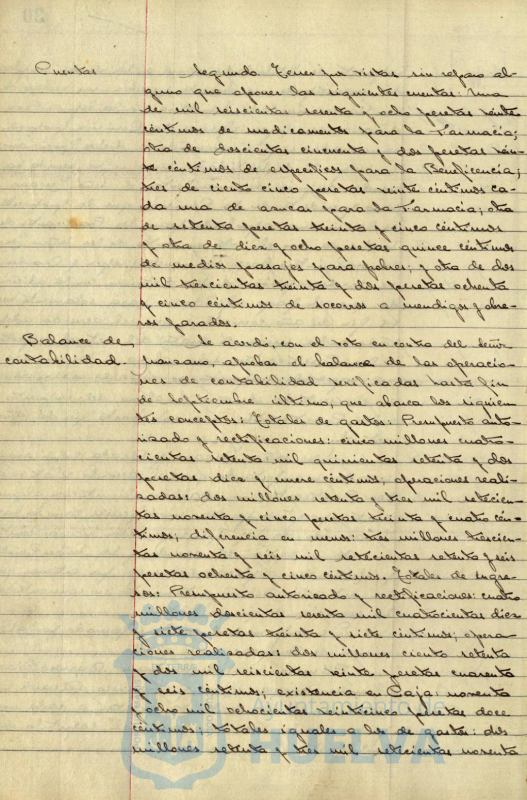 Cuentas
Segundo. Tener por vistas sin reparo al-
guno que oponer las siguientes cuentas: Una
de mil seiscientas sesenta y ocho pesetas veinte
céntimos de medicamentos para la Farmacia;
otra de doscientas cincuenta y dos pesetas vein-
te céntimos de específicos para la Beneficencia;
tres de ciento cinco pesetas veinte céntimos ca-
da una de azucar para la Farmacia; otra
de setenta pesetas treinta y cinco céntimos
y otra de diez y ocho pesetas quince céntimos
de medios pasajes para pobres; y otra de dos
mil trescientas treinta y dos pesetas ochenta
y cinco céntimos de socorros a mendigos y obre-
ros parados.
Balance de
contabilidad.
Se acordó, con el voto en contra del señor
Manzano, aprobar el balance de las operacio-
nes de contabilidad verificadas hasta fin
de Septiembre último, que abarca los siguien-
tes conceptos: Totales de gastos: Presupuesto auto-
rizado y rectificaciones: cinco millones cuatro-
cientas setenta mil quinientas setenta y dos
pesetas diez y nueve céntimos; operaciones reali-
zadas: dos millones setenta y tres mil setecien-
tas noventa y cinco pesetas treinta y cuatro cén-
timos; diferencia en menos: tres millones trescien-
tas noventa y seis mil setecientas setenta y seis
pesetas ochenta y cinco céntimos. Totales de ingre-
sos: Presupuesto autorizado y rectificaciones: cuatro
millones doscientas sesenta mil cuatrocientas diez
y siete pesetas treinta y siete céntimos; opera-
ciones realizadas: dos millones ciento setenta
y dos mil seiscientas veinte pesetas cuarenta
y seis céntimos; existencia en Caja: noventa
y ocho mil ochocientas veinticinco pesetas doce
céntimos; totales iguales a los de gastos: dos
millones setenta y tres mil setecientas noventa
HUELVA